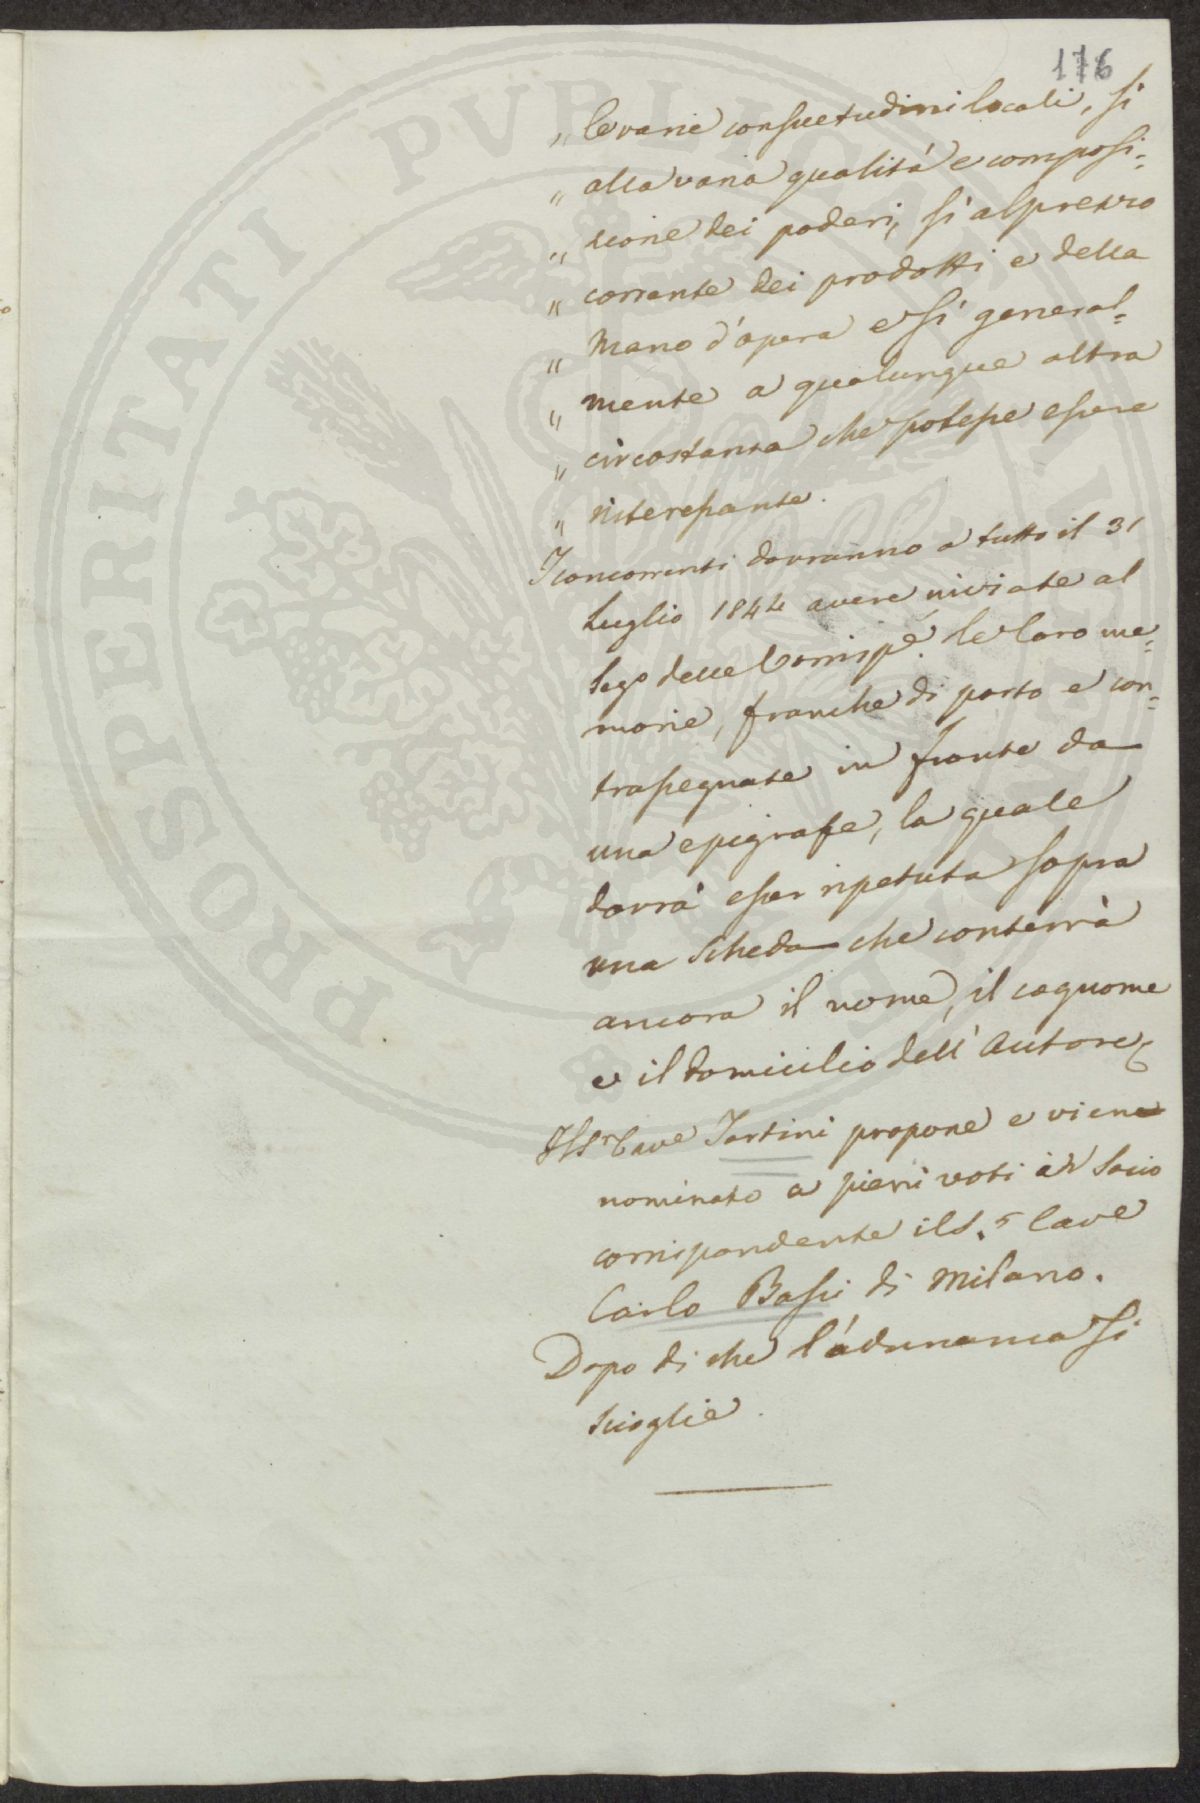 176
„ le varie consuetudini locali, sì
„ alla varia qualità e composi=
„ zione dei poderi, sì al prezzo
„ corrente dei prodotti e della
„ mano d'opera e sì general=
„ mente a qualunque altra
„ circostanza che potesse essere
„ interessante.
I concorrenti dovranno a tutto il 31
Luglio 1844 avere inviate al
Sego delle Corrispe. le loro me=
morie, franche di porto e con=
trassegnate in fronte da
una epigrafe, la quale
dovrà esser ripetuta sopra
una scheda che conterrà
ancora il nome, il cognome
e il domicilio dell'Autore
Il Sr Cave Tartini propone e viene
nominato a pieni voti in Socio
corrispondente il S.r Cave
Carlo Bassi di Milano.
Dopo di che l'adunanza si
scioglie.
PROSPERITATI PVBLICAE